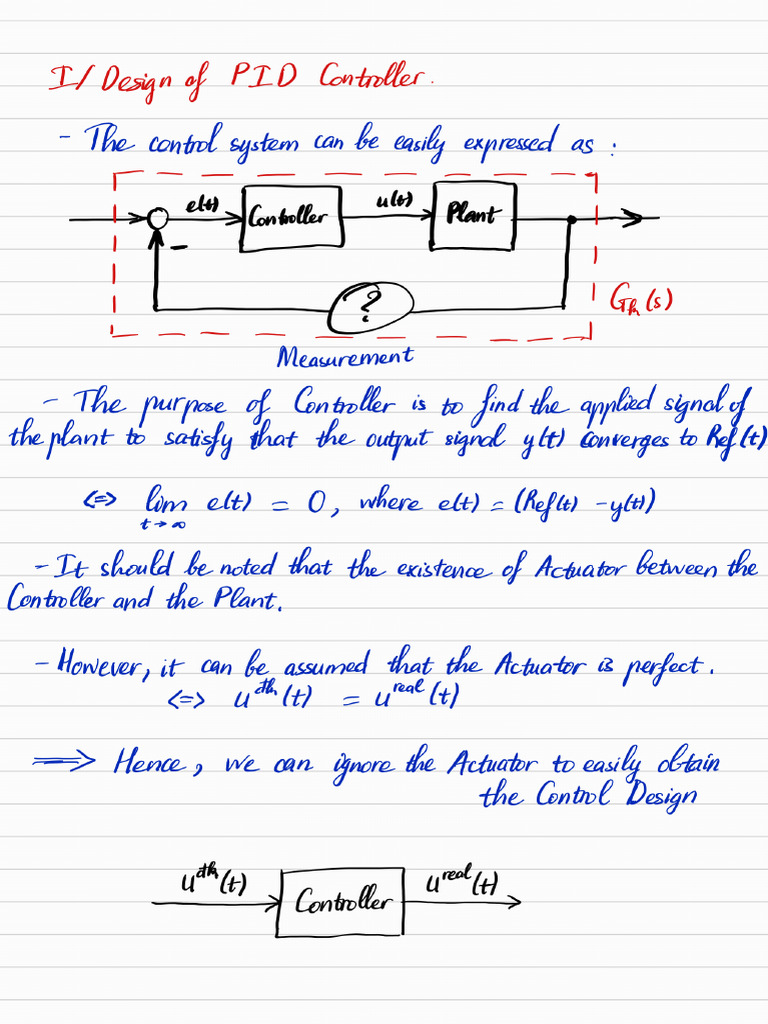 I/ Design of PID Controller.
- The control system can be easily expressed as :
e(t) Controller u(t) Plant
−
?
G_th(s)
Measurement
- The purpose of Controller is to find the applied signal of
the plant to satisfy that the output signal y(t) converges to Ref(t)
<=> lim e(t) = 0, where e(t) = (Ref(t) - y(t))
t→∞
- It should be noted that the existence of Actuator between the
Controller and the Plant.
- However, it can be assumed that the Actuator is perfect.
<=> u^th(t) = u^real(t)
=> Hence, we can ignore the Actuator to easily obtain
the Control Design
u^th(t) Controller u^real(t)